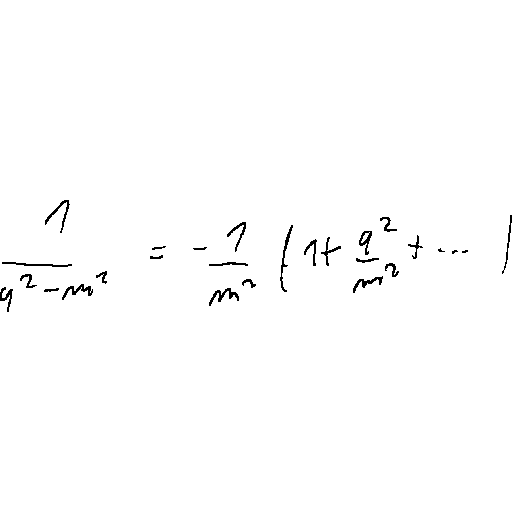 \frac{1}{q^2-m^2} = -\frac{1}{m^2}\left(1+\frac{q^2}{m^2}+\cdots\right)